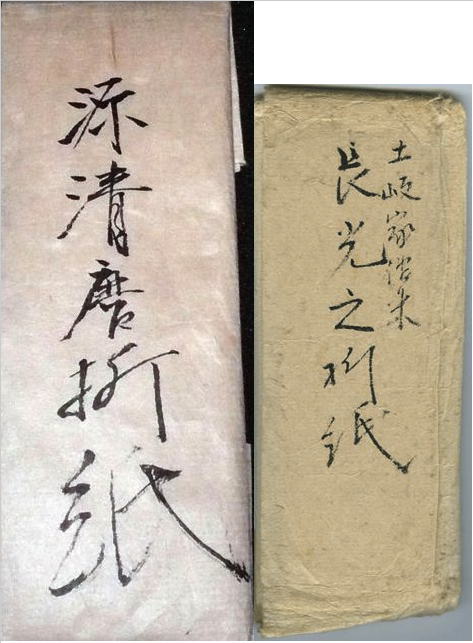 源清磨折紙
土岐家傳来
長光之折紙